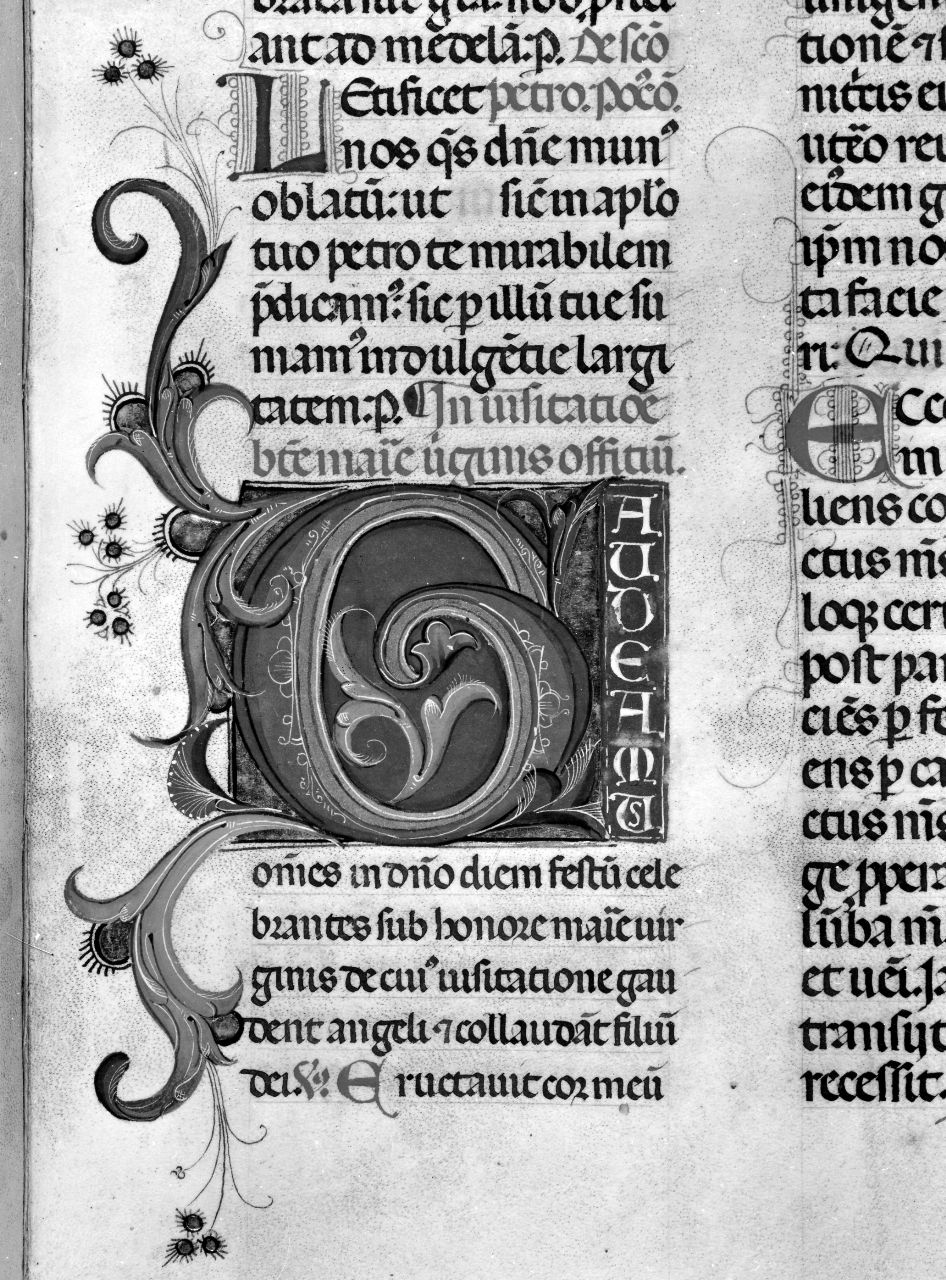 ant ad medelã: P. De scõ
LEtificet petro. Pocõ.
nos q̃s dñe munꝰ
oblatũ: ut sic̃ in aplo
tuo petro te mirabilem
p̃dicamꝰ: sic ꝑ illũ tue sũ
mamꝰ indulgẽtie largi
tatem: P. In uisitatiõe
bt̃e marĩe ũginis offitiũ.
GAUDEAMUS
om̃es in dño diem festũ cele
brantes sub honore marĩe uir
ginis de cuiꝰ uisitatione gau
dent angeli ⁊ collaudãt filiũ
dei. V̾. Eructauit cor meũ
tionẽ ⁊
mittis ei
utẽo
eiꝰdem g
ip̃m no
ta facie
ri: Qui
Ecc
in
liens co
ctus nĩs
loqꝫ cer
post par
ciẽs ꝑ fe
ens ꝑ ca
ctus nĩs
ge
et
transijt
recessit.